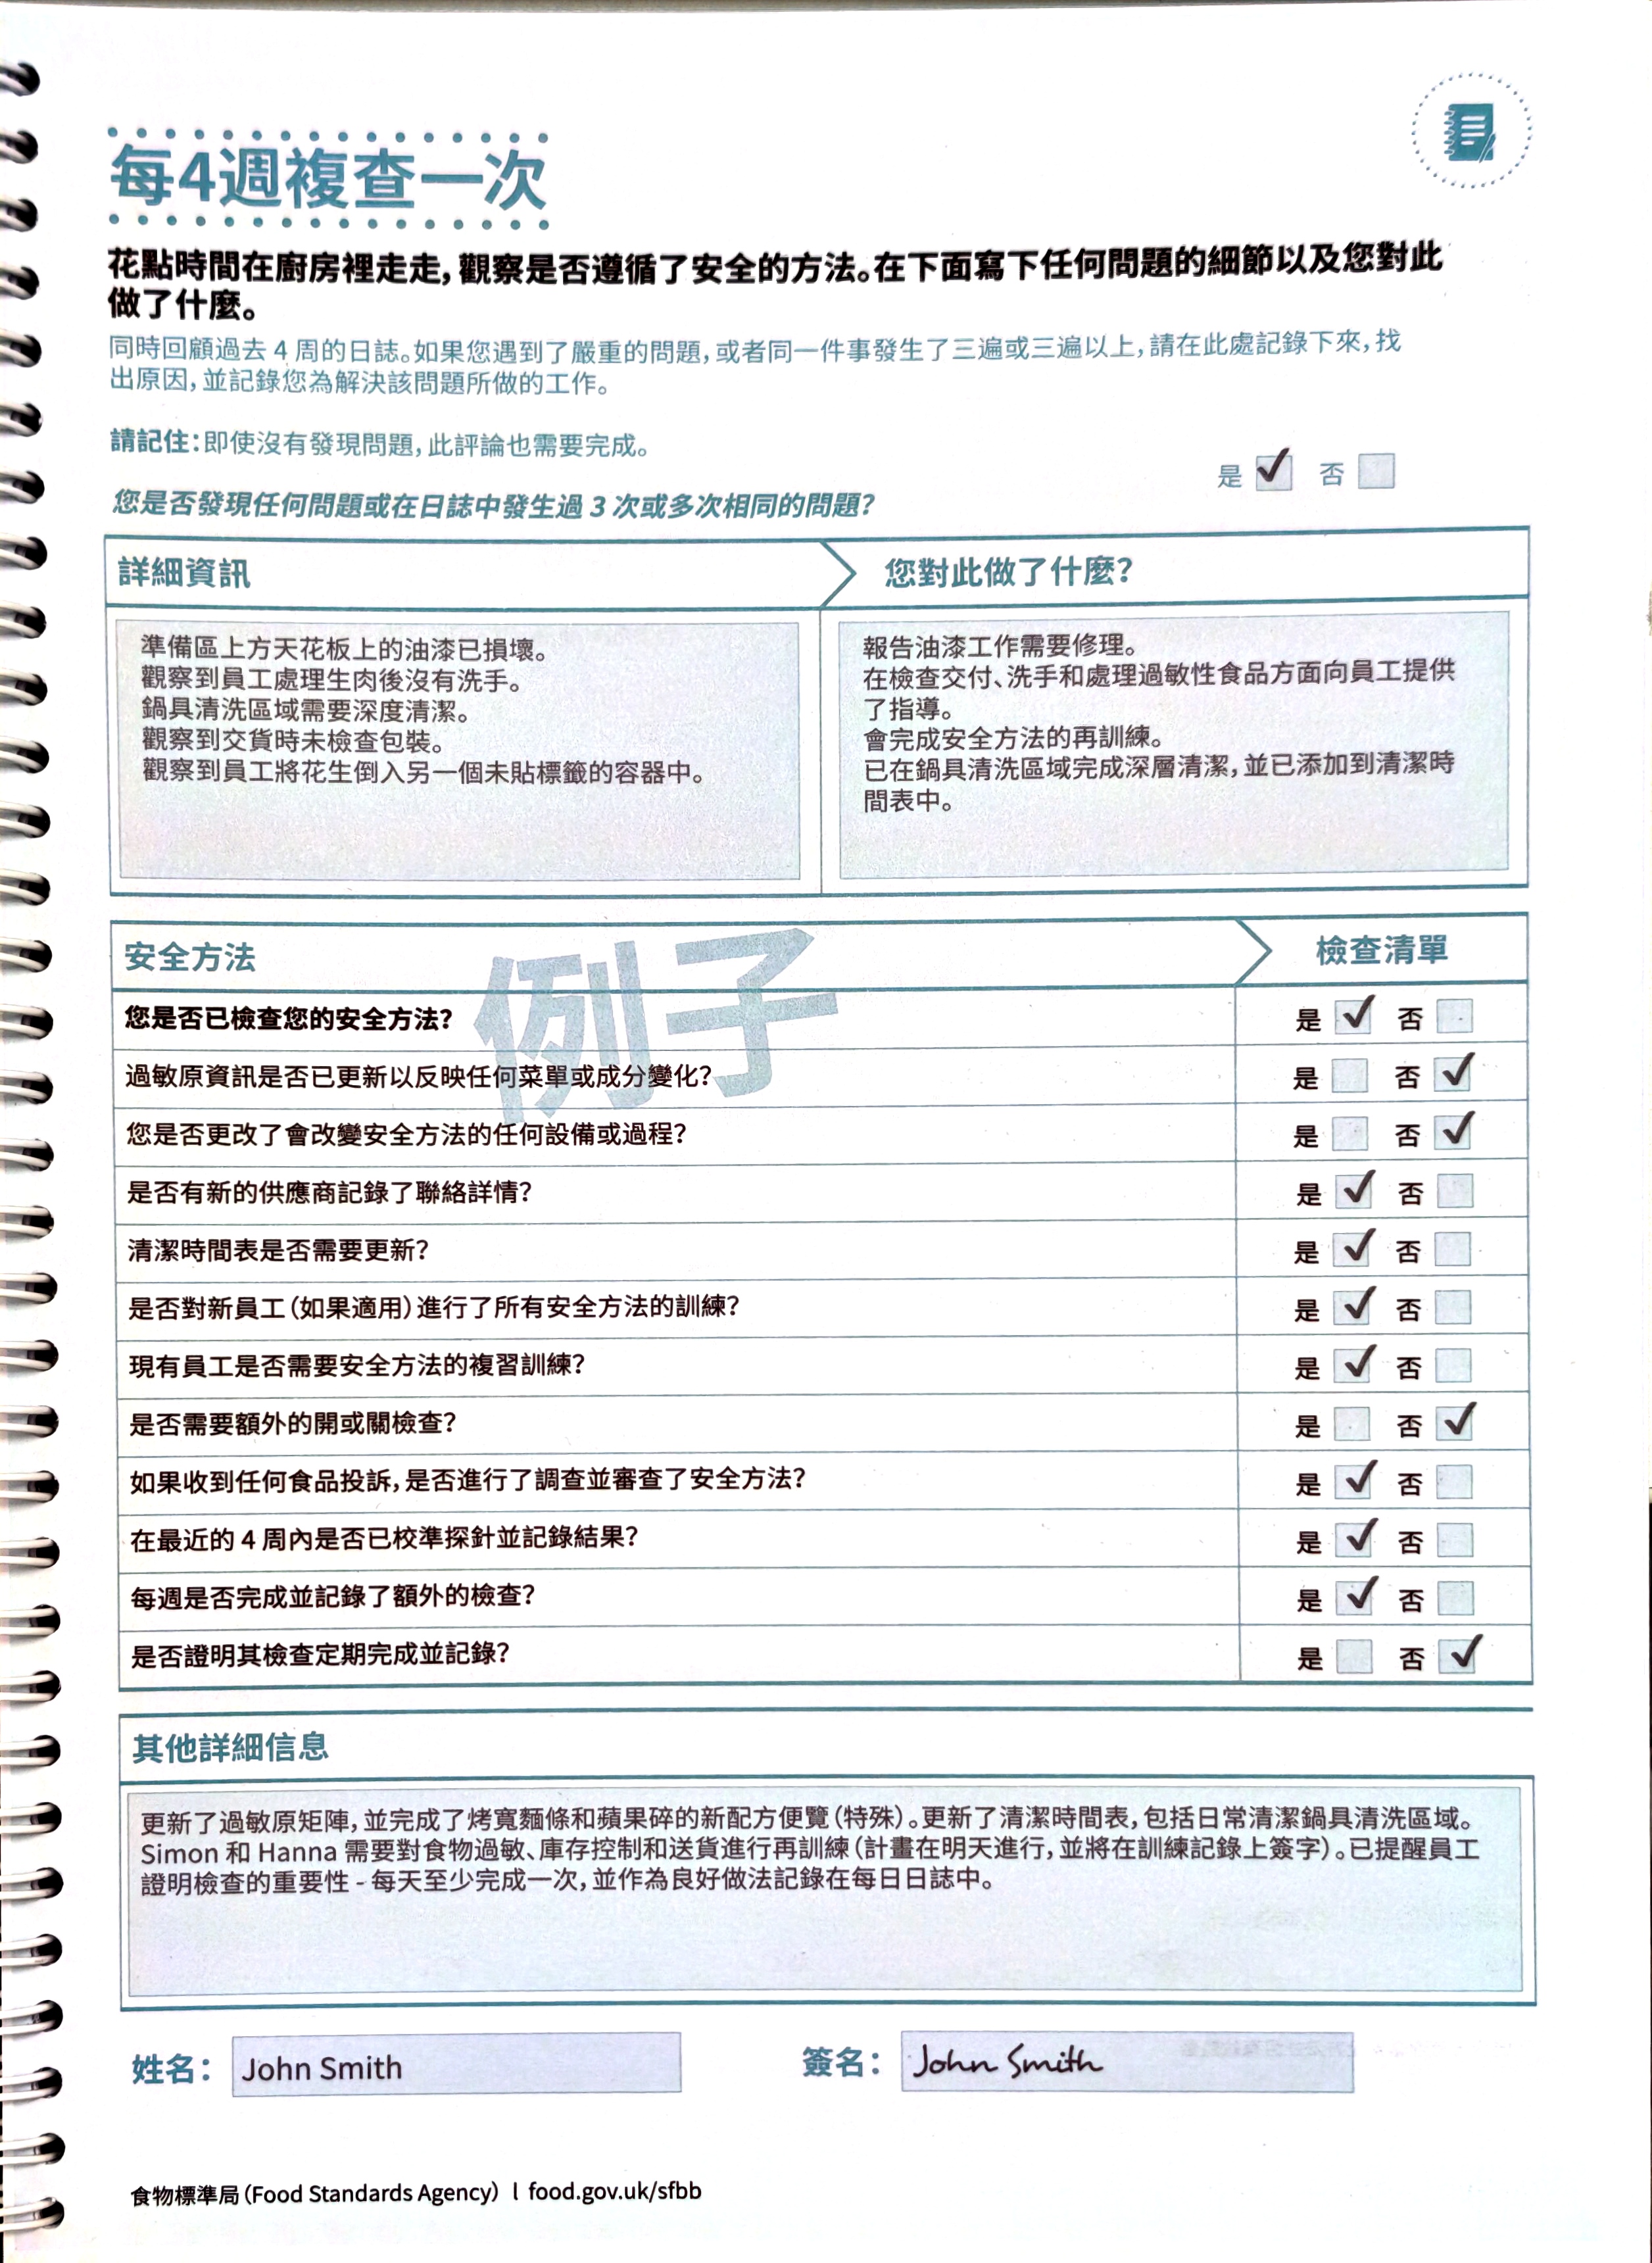 每4週複查一次
花點時間在廚房裡走走，觀察是否遵循了安全的方法。在下面寫下任何問題的細節以及您對此
做了什麼。
同時回顧過去 4 周的日誌。如果您遇到了嚴重的問題，或者同一件事發生了三遍或三遍以上，請在此處記錄下來，找
出原因，並記錄您為解決該問題所做的工作。
請記住：即使沒有發現問題，此評論也需要完成。
是 ✓ 否
您是否發現任何問題或在日誌中發生過 3 次或多次相同的問題？
詳細資訊
準備區上方天花板上的油漆已損壞。
觀察到員工處理生肉後沒有洗手。
鍋具清洗區域需要深度清潔。
觀察到交貨時未檢查包裝。
觀察到員工將花生倒入另一個未貼標籤的容器中。
您對此做了什麼？
報告油漆工作需要修理。
在檢查交付、洗手和處理過敏性食品方面向員工提供
了指導。
會完成安全方法的再訓練。
已在鍋具清洗區域完成深層清潔，並已添加到清潔時
間表中。
例子
安全方法 檢查清單
您是否已檢查您的安全方法？ 是 ✓ 否
過敏原資訊是否已更新以反映任何菜單或成分變化？ 是 否 ✓
您是否更改了會改變安全方法的任何設備或過程？ 是 否 ✓
是否有新的供應商記錄了聯絡詳情？ 是 ✓ 否
清潔時間表是否需要更新？ 是 ✓ 否
是否對新員工（如果適用）進行了所有安全方法的訓練？ 是 ✓ 否
現有員工是否需要安全方法的複習訓練？ 是 ✓ 否
是否需要額外的開或關檢查？ 是 否 ✓
如果收到任何食品投訴，是否進行了調查並審查了安全方法？ 是 ✓ 否
在最近的 4 周內是否已校準探針並記錄結果？ 是 ✓ 否
每週是否完成並記錄了額外的檢查？ 是 ✓ 否
是否證明其檢查定期完成並記錄？ 是 否 ✓
其他詳細信息
更新了過敏原矩陣，並完成了烤寬麵條和蘋果碎的新配方便覽（特殊）。更新了清潔時間表，包括日常清潔鍋具清洗區域。
Simon 和 Hanna 需要對食物過敏、庫存控制和送貨進行再訓練（計畫在明天進行，並將在訓練記錄上簽字）。已提醒員工
證明檢查的重要性 - 每天至少完成一次，並作為良好做法記錄在每日日誌中。
姓名： John Smith 簽名： John Smith
食物標準局（Food Standards Agency） l food.gov.uk/sfbb